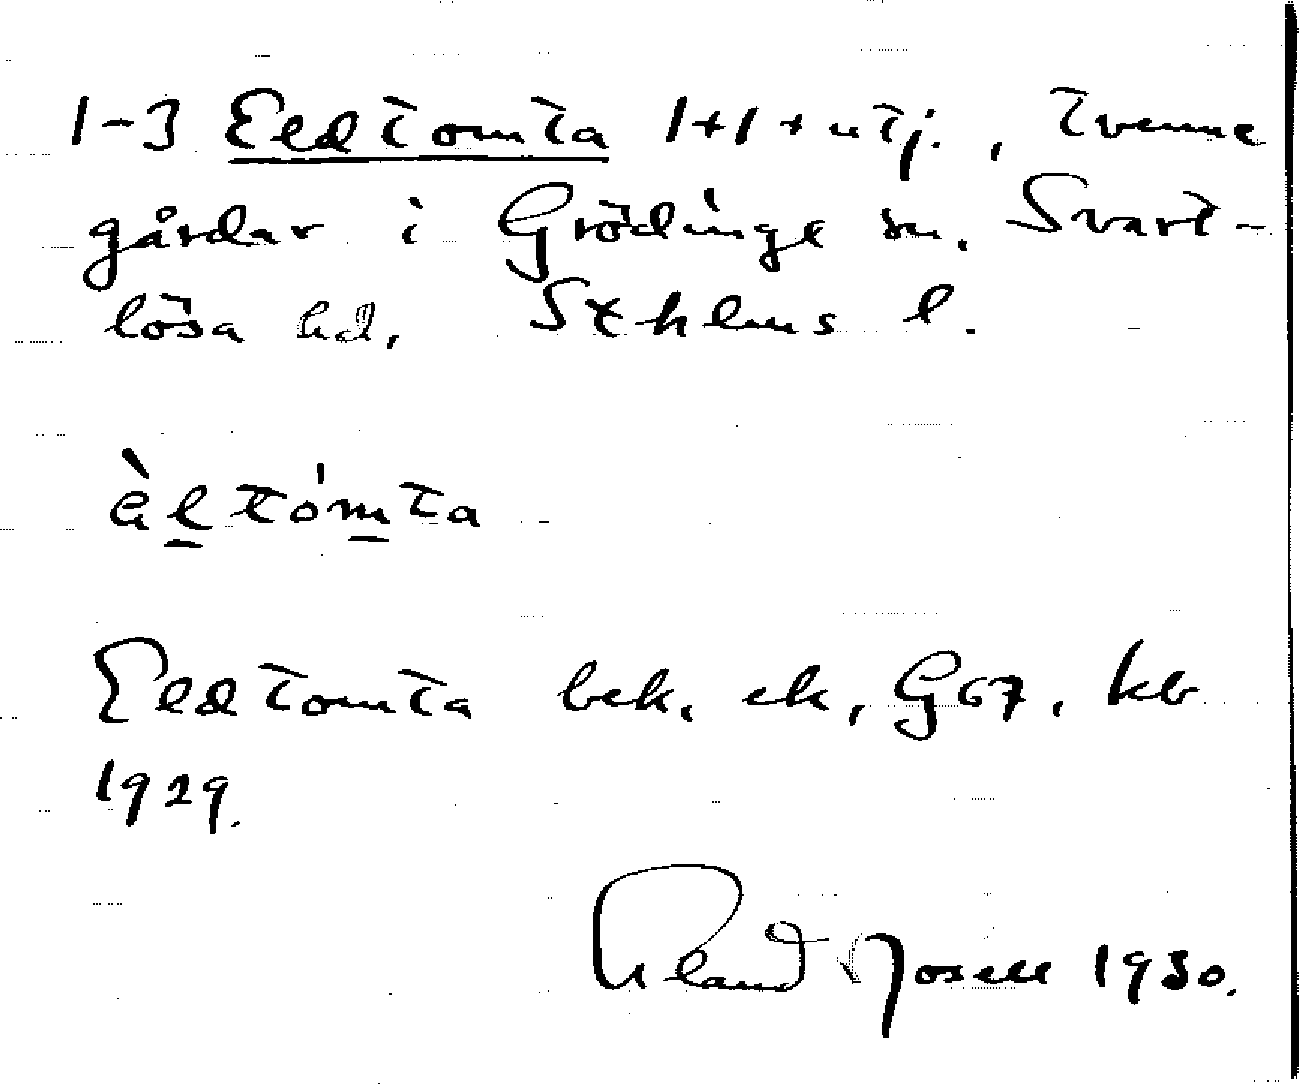 1-3 Eldtomta 1+1+utj., tvenne
gårdar i Grödinge sn, Svart-
lösa hd, Sthlms l.
èltómta
Eldtomta bek, ek, G67, kb
1929.
Josell 1930.